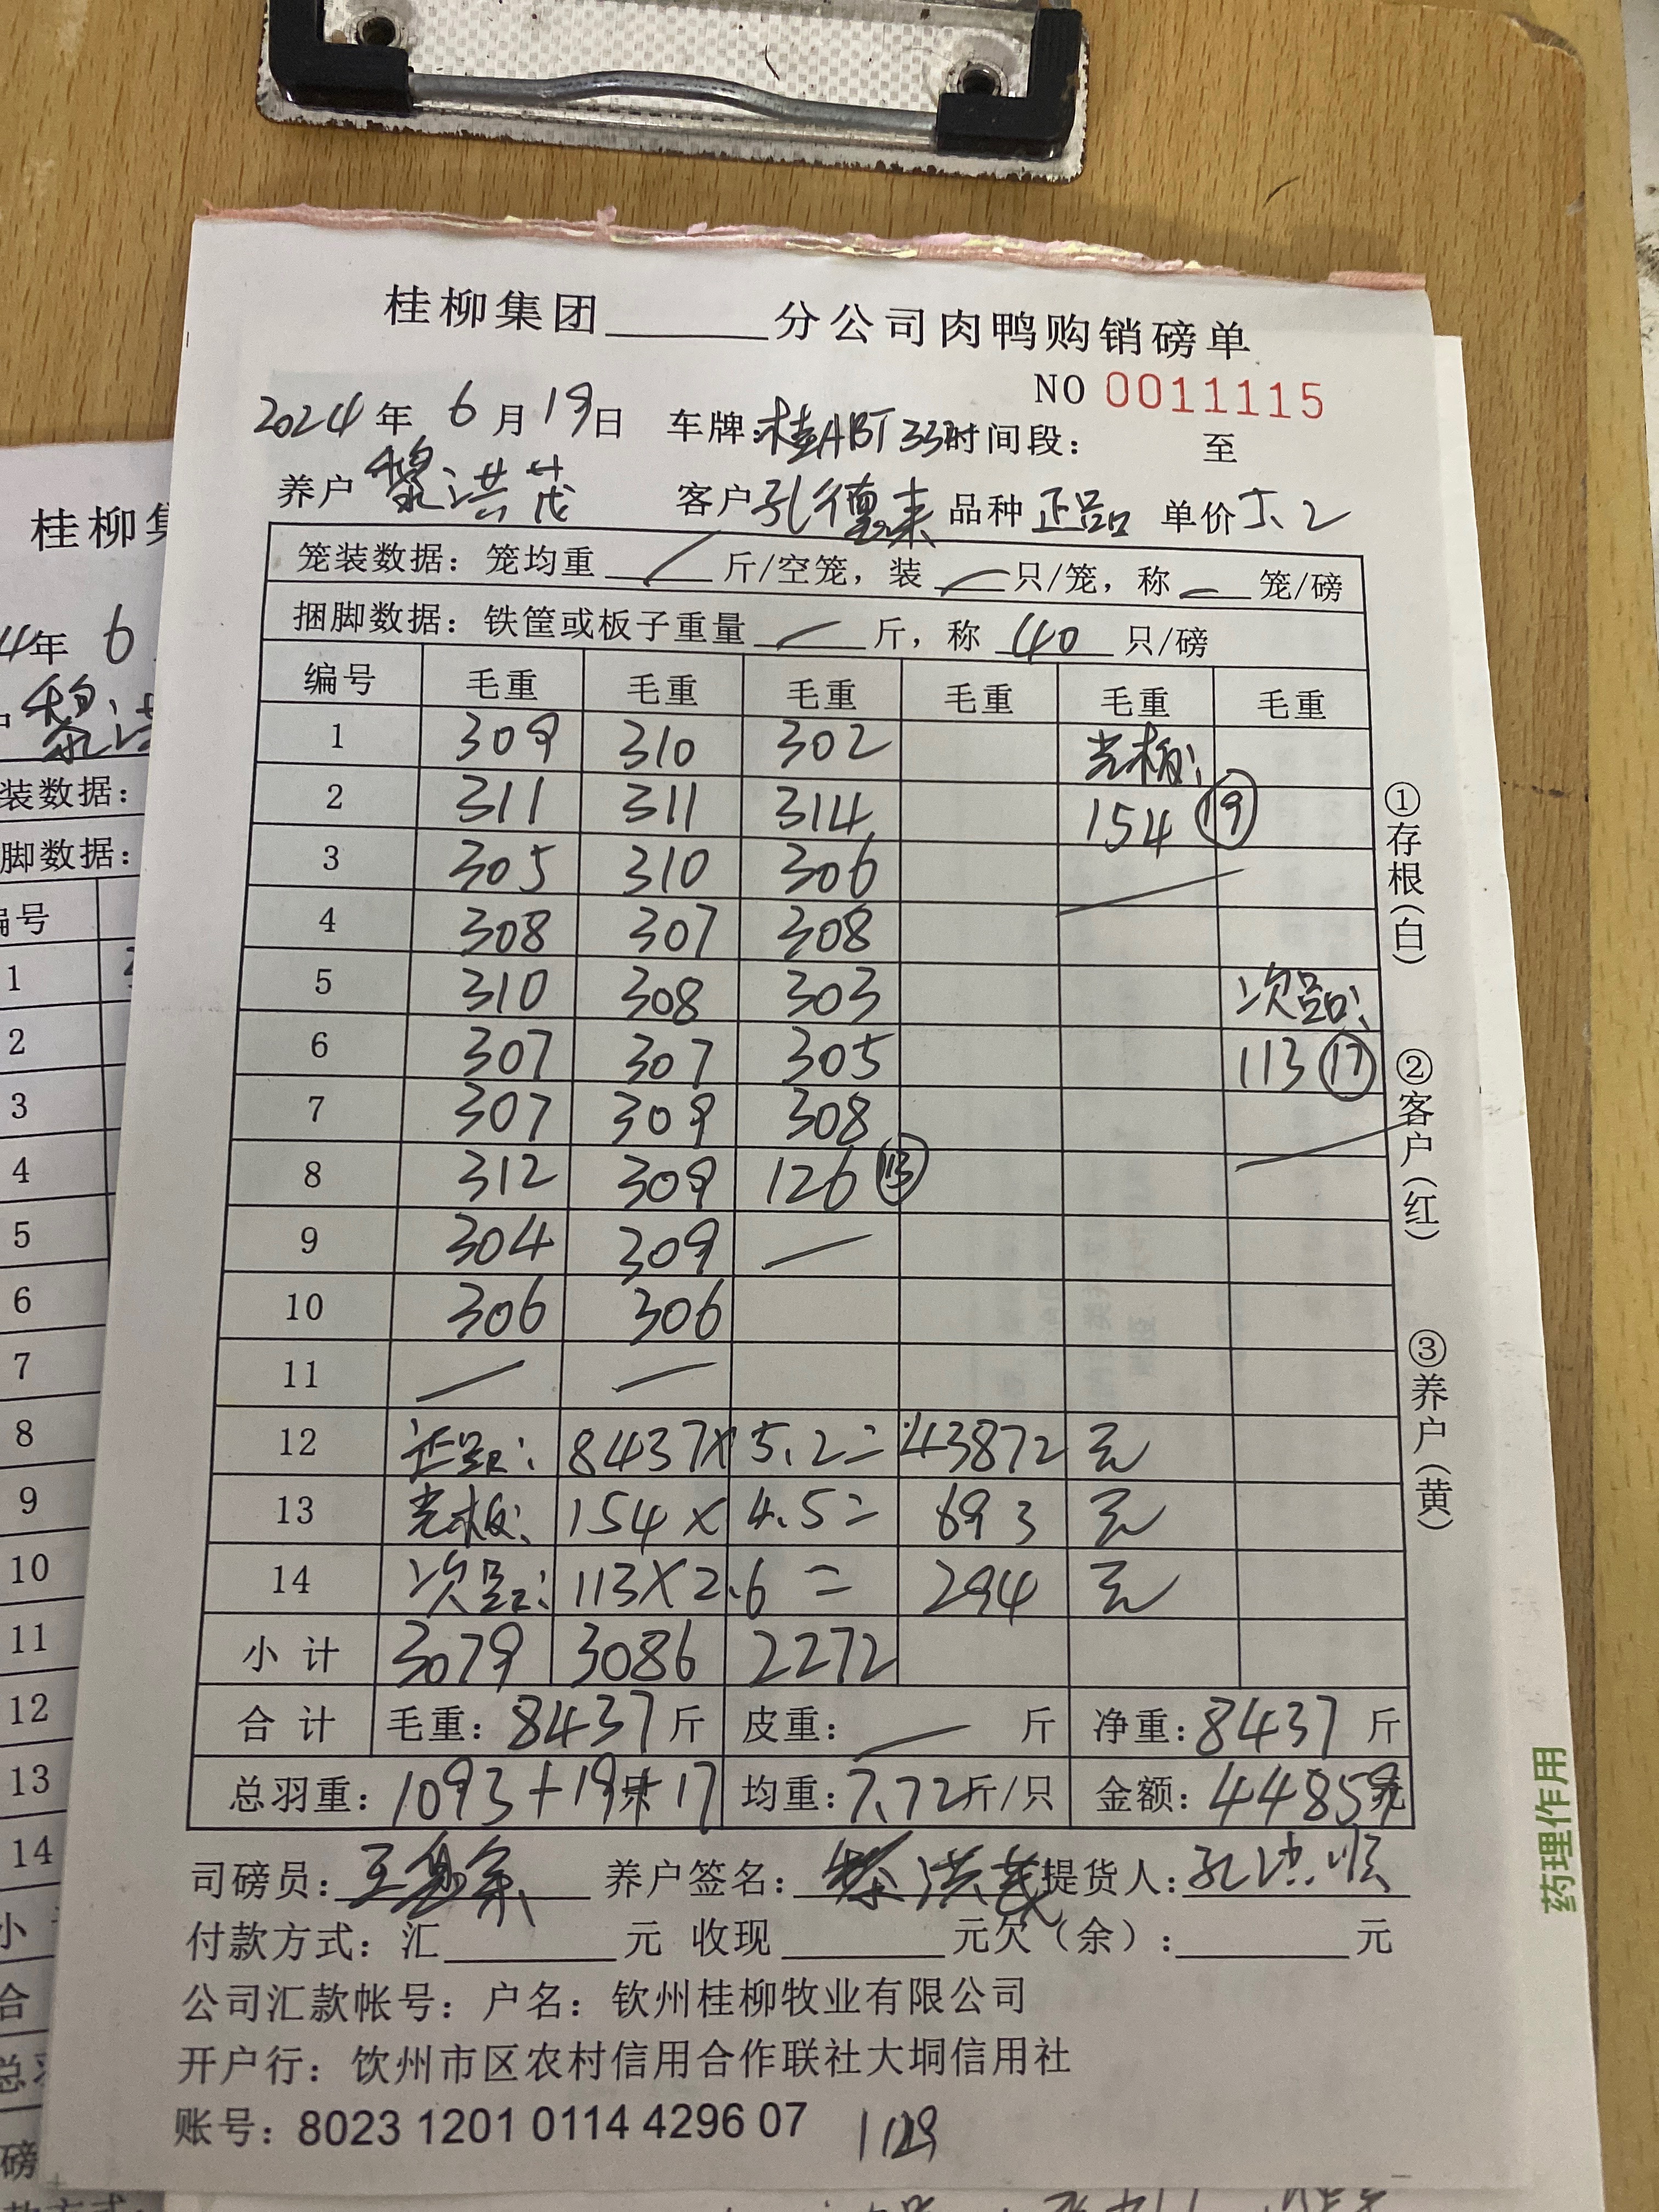 桂柳集团______分公司肉鸭购销磅单
NO 0011115
2024年 6月19日 车牌:桂ABT33 时间段: 至
养户 黎洪茂 客户 孔德来 品种 正品 单价 5.2
笼装数据: 笼均重 / 斤/空笼, 装 / 只/笼, 称 / 笼/磅
捆脚数据: 铁筐或板子重量 / 斤, 称 40 只/磅
编号 毛重 毛重 毛重 毛重 毛重 毛重
1 309 310 302 光板:
2 311 311 314 154 ⑲
3 305 310 306
4 308 307 308
5 310 308 303 次品:
6 307 307 305 113 ⑰
7 307 309 308
8 312 309 126 ⑬
9 304 309 /
10 306 306
11 / /
12 正品: 8437×5.2=43872元
13 光板: 154×4.5=693元
14 次品: 113×2.6=294元
小计 3079 3086 2272
合计 毛重: 8437斤 皮重: / 斤 净重: 8437斤
总羽重: 1093+19+17 均重: 7.72斤/只 金额: 44859元
司磅员: 养户签名: 黎洪茂 提货人:
付款方式: 汇______元 收现______元欠(余):______元
公司汇款帐号: 户名: 钦州桂柳牧业有限公司
开户行: 钦州市区农村信用合作联社大垌信用社
账号: 8023 1201 0114 4296 07 1129
①存根(白)
②客户(红)
③养户(黄)
药理作用
桂柳集
4年 6
黎洪
装数据:
脚数据:
编号
1
2
3
4
5
6
7
8
9
10
11
12
13
14
小
合
总
磅